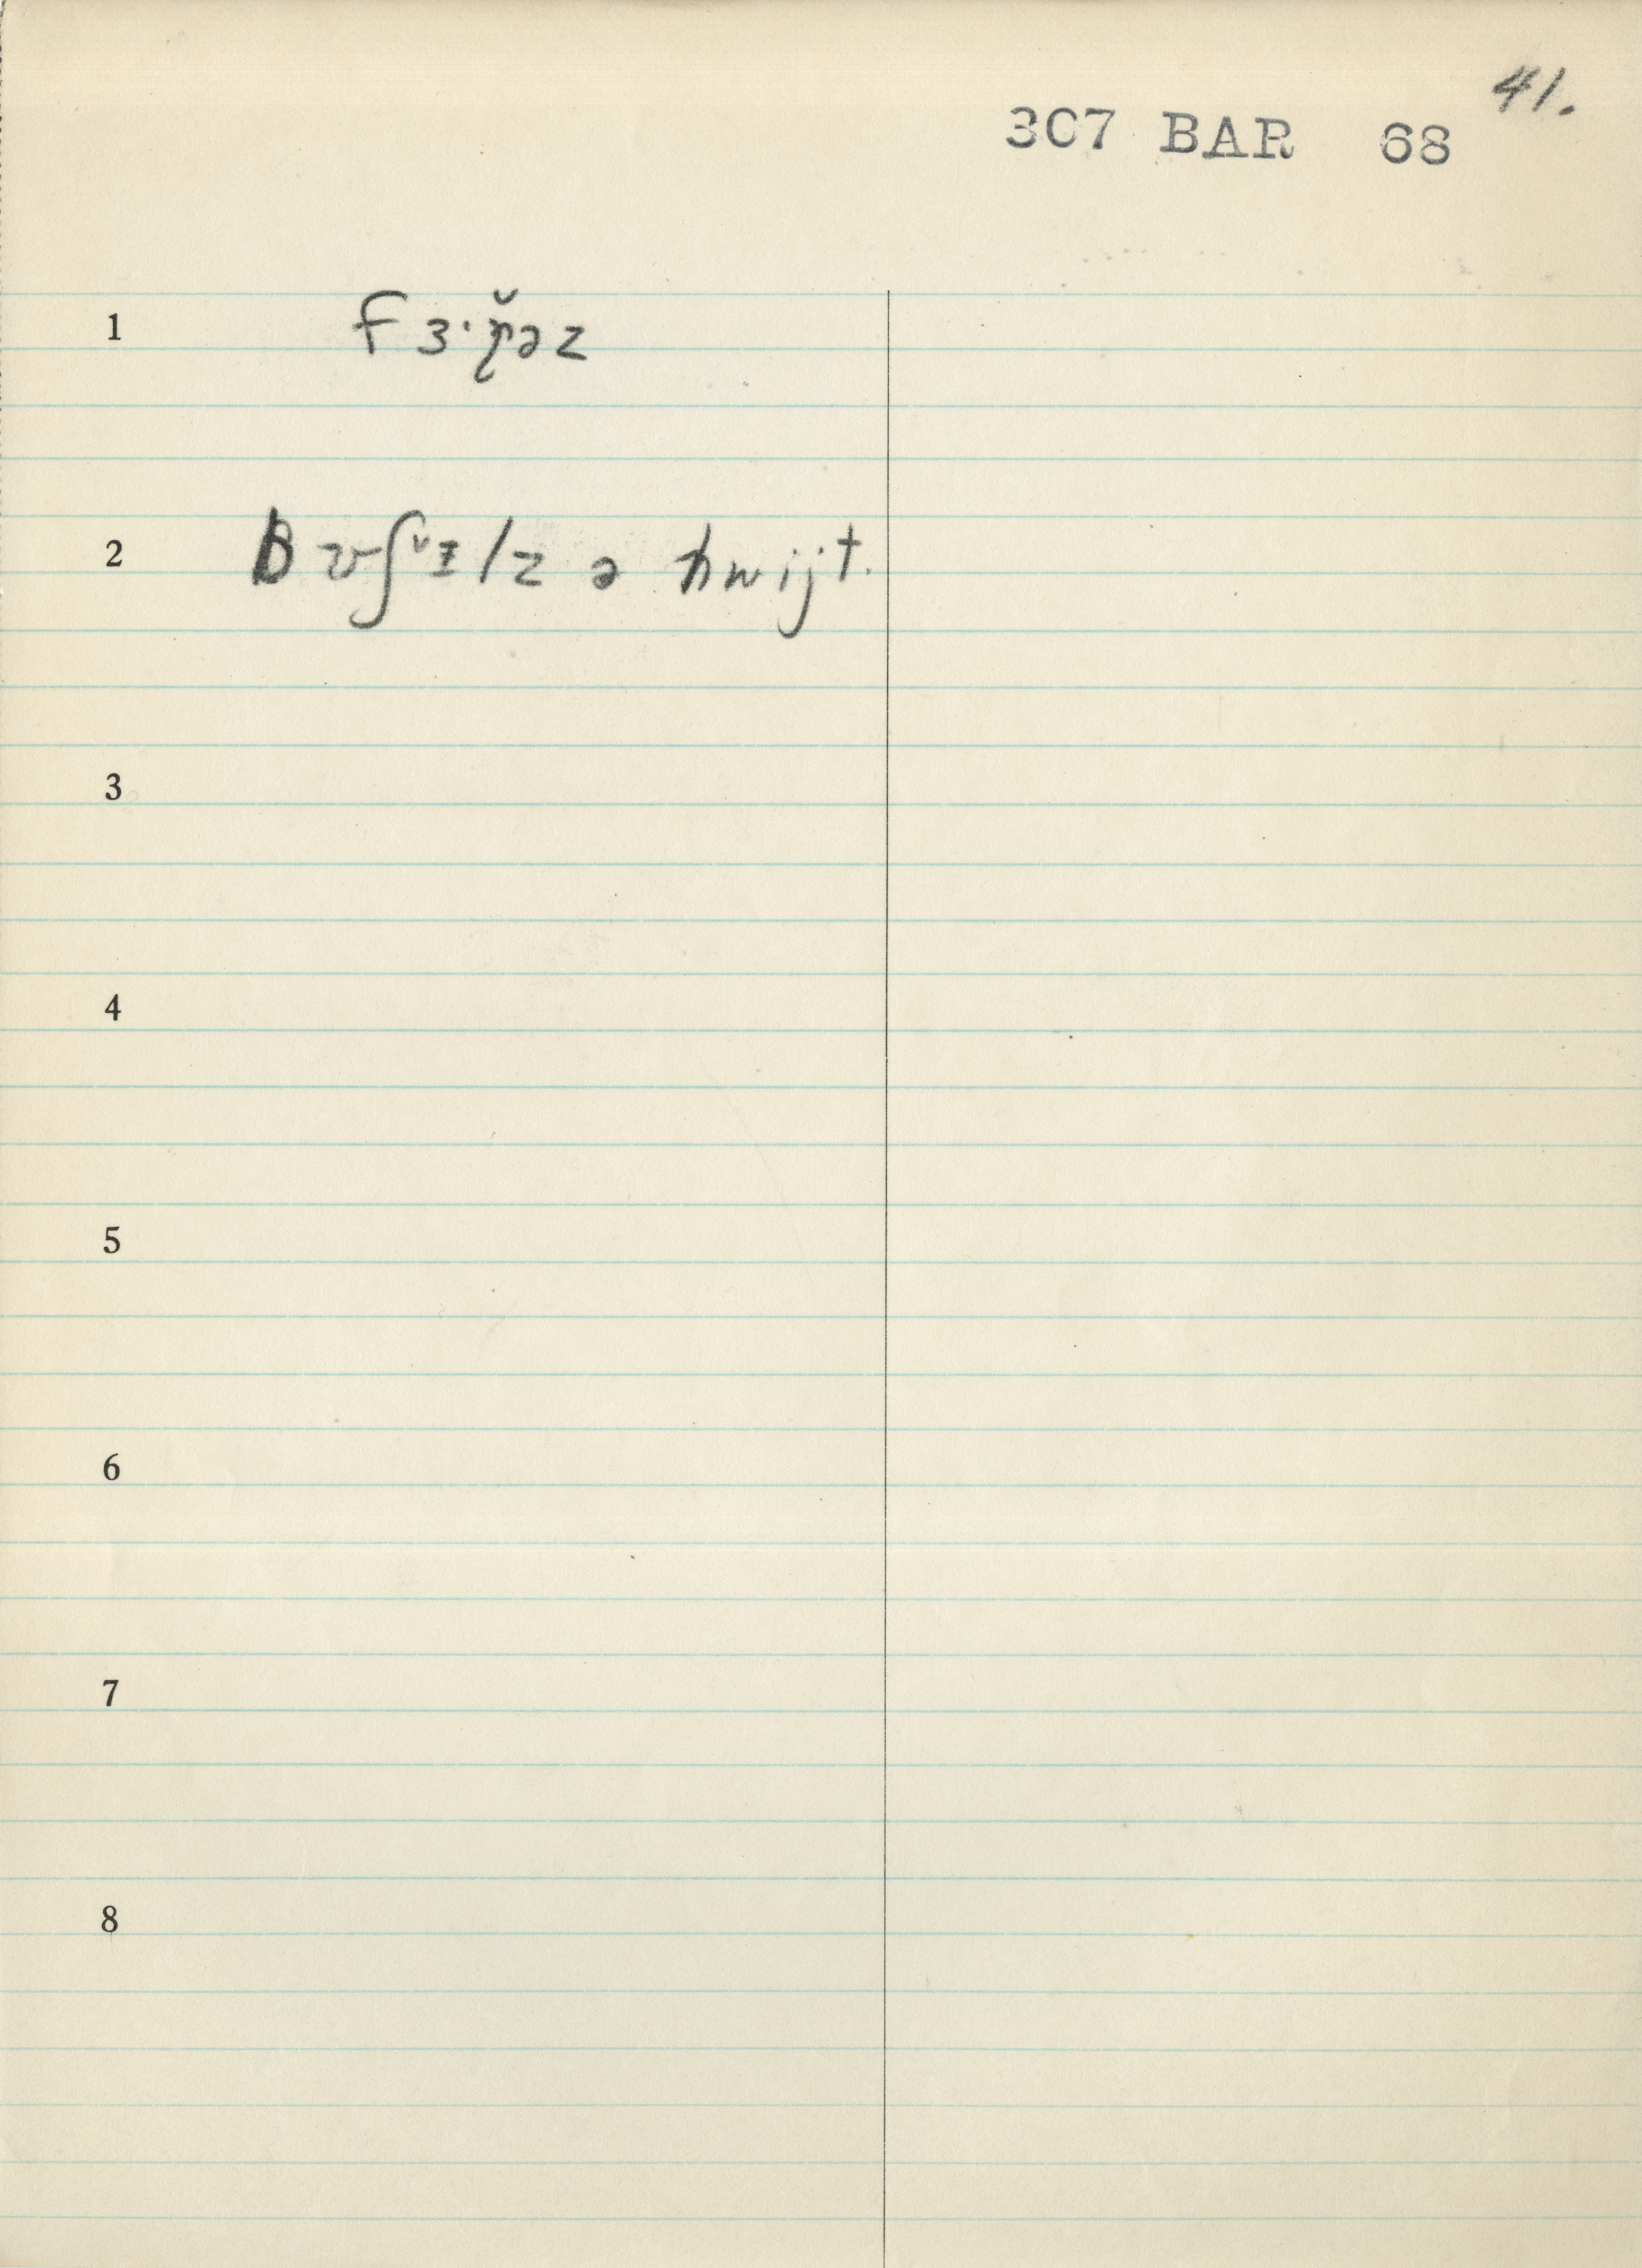 41.
307 BAR 68
1 fɜ·ɽ̆əz
2 bʊʃᵛɪlz ə hwijt.
3
4
5
6
7
8